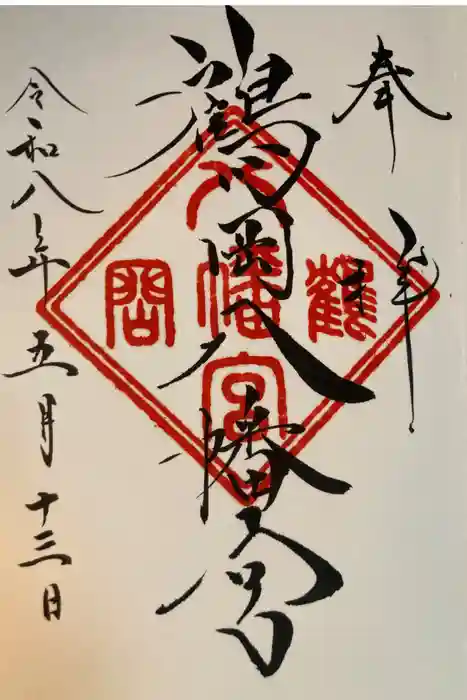 奉拝
鶴岡八幡宮
鶴岡
八幡宮
令和八年五月十三日